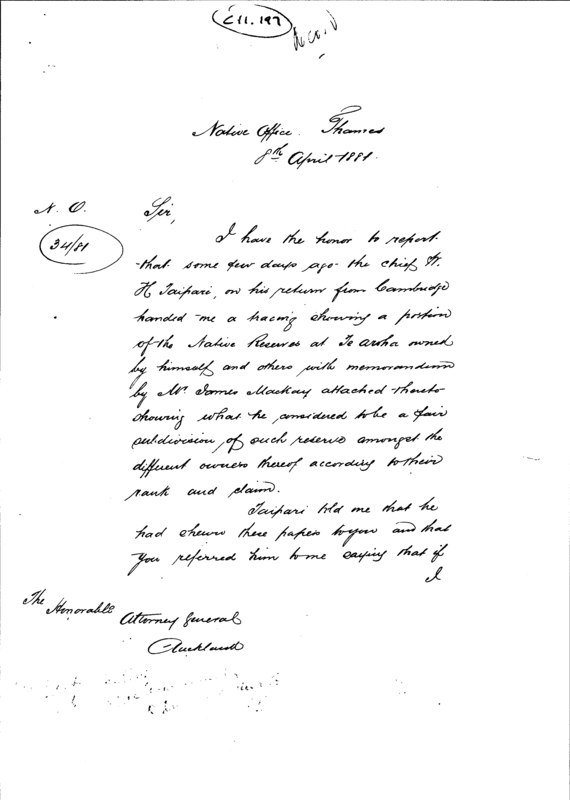 C11.197
Native Office. Thames
8th April 1881.
N. O.
34/81
Sir,
I have the honor to report
that some few days ago the chief W.
H Taipari, on his return from Cambridge
handed me a tracing showing a portion
of the Native Reserves at Te Aroha owned
by himself and others with memorandum
by Mr. James Mackay attached thereto
showing what he considered to be a fair
subdivision of such reserve amongst the
different owners thereof according to their
rank and claim.
Taipari told me that he
had shewn these papers to you and that
you referred him to me saying that if
I
The Honorable
Attorney General
Auckland